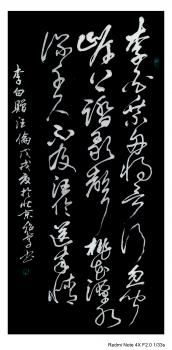 李白乘舟将欲行忽闻
岸上踏歌声桃花潭水
深千尺不及汪伦送我情
李白赠汪伦戊戌夏於北京
Redmi Note 4X F2.0 1/33s